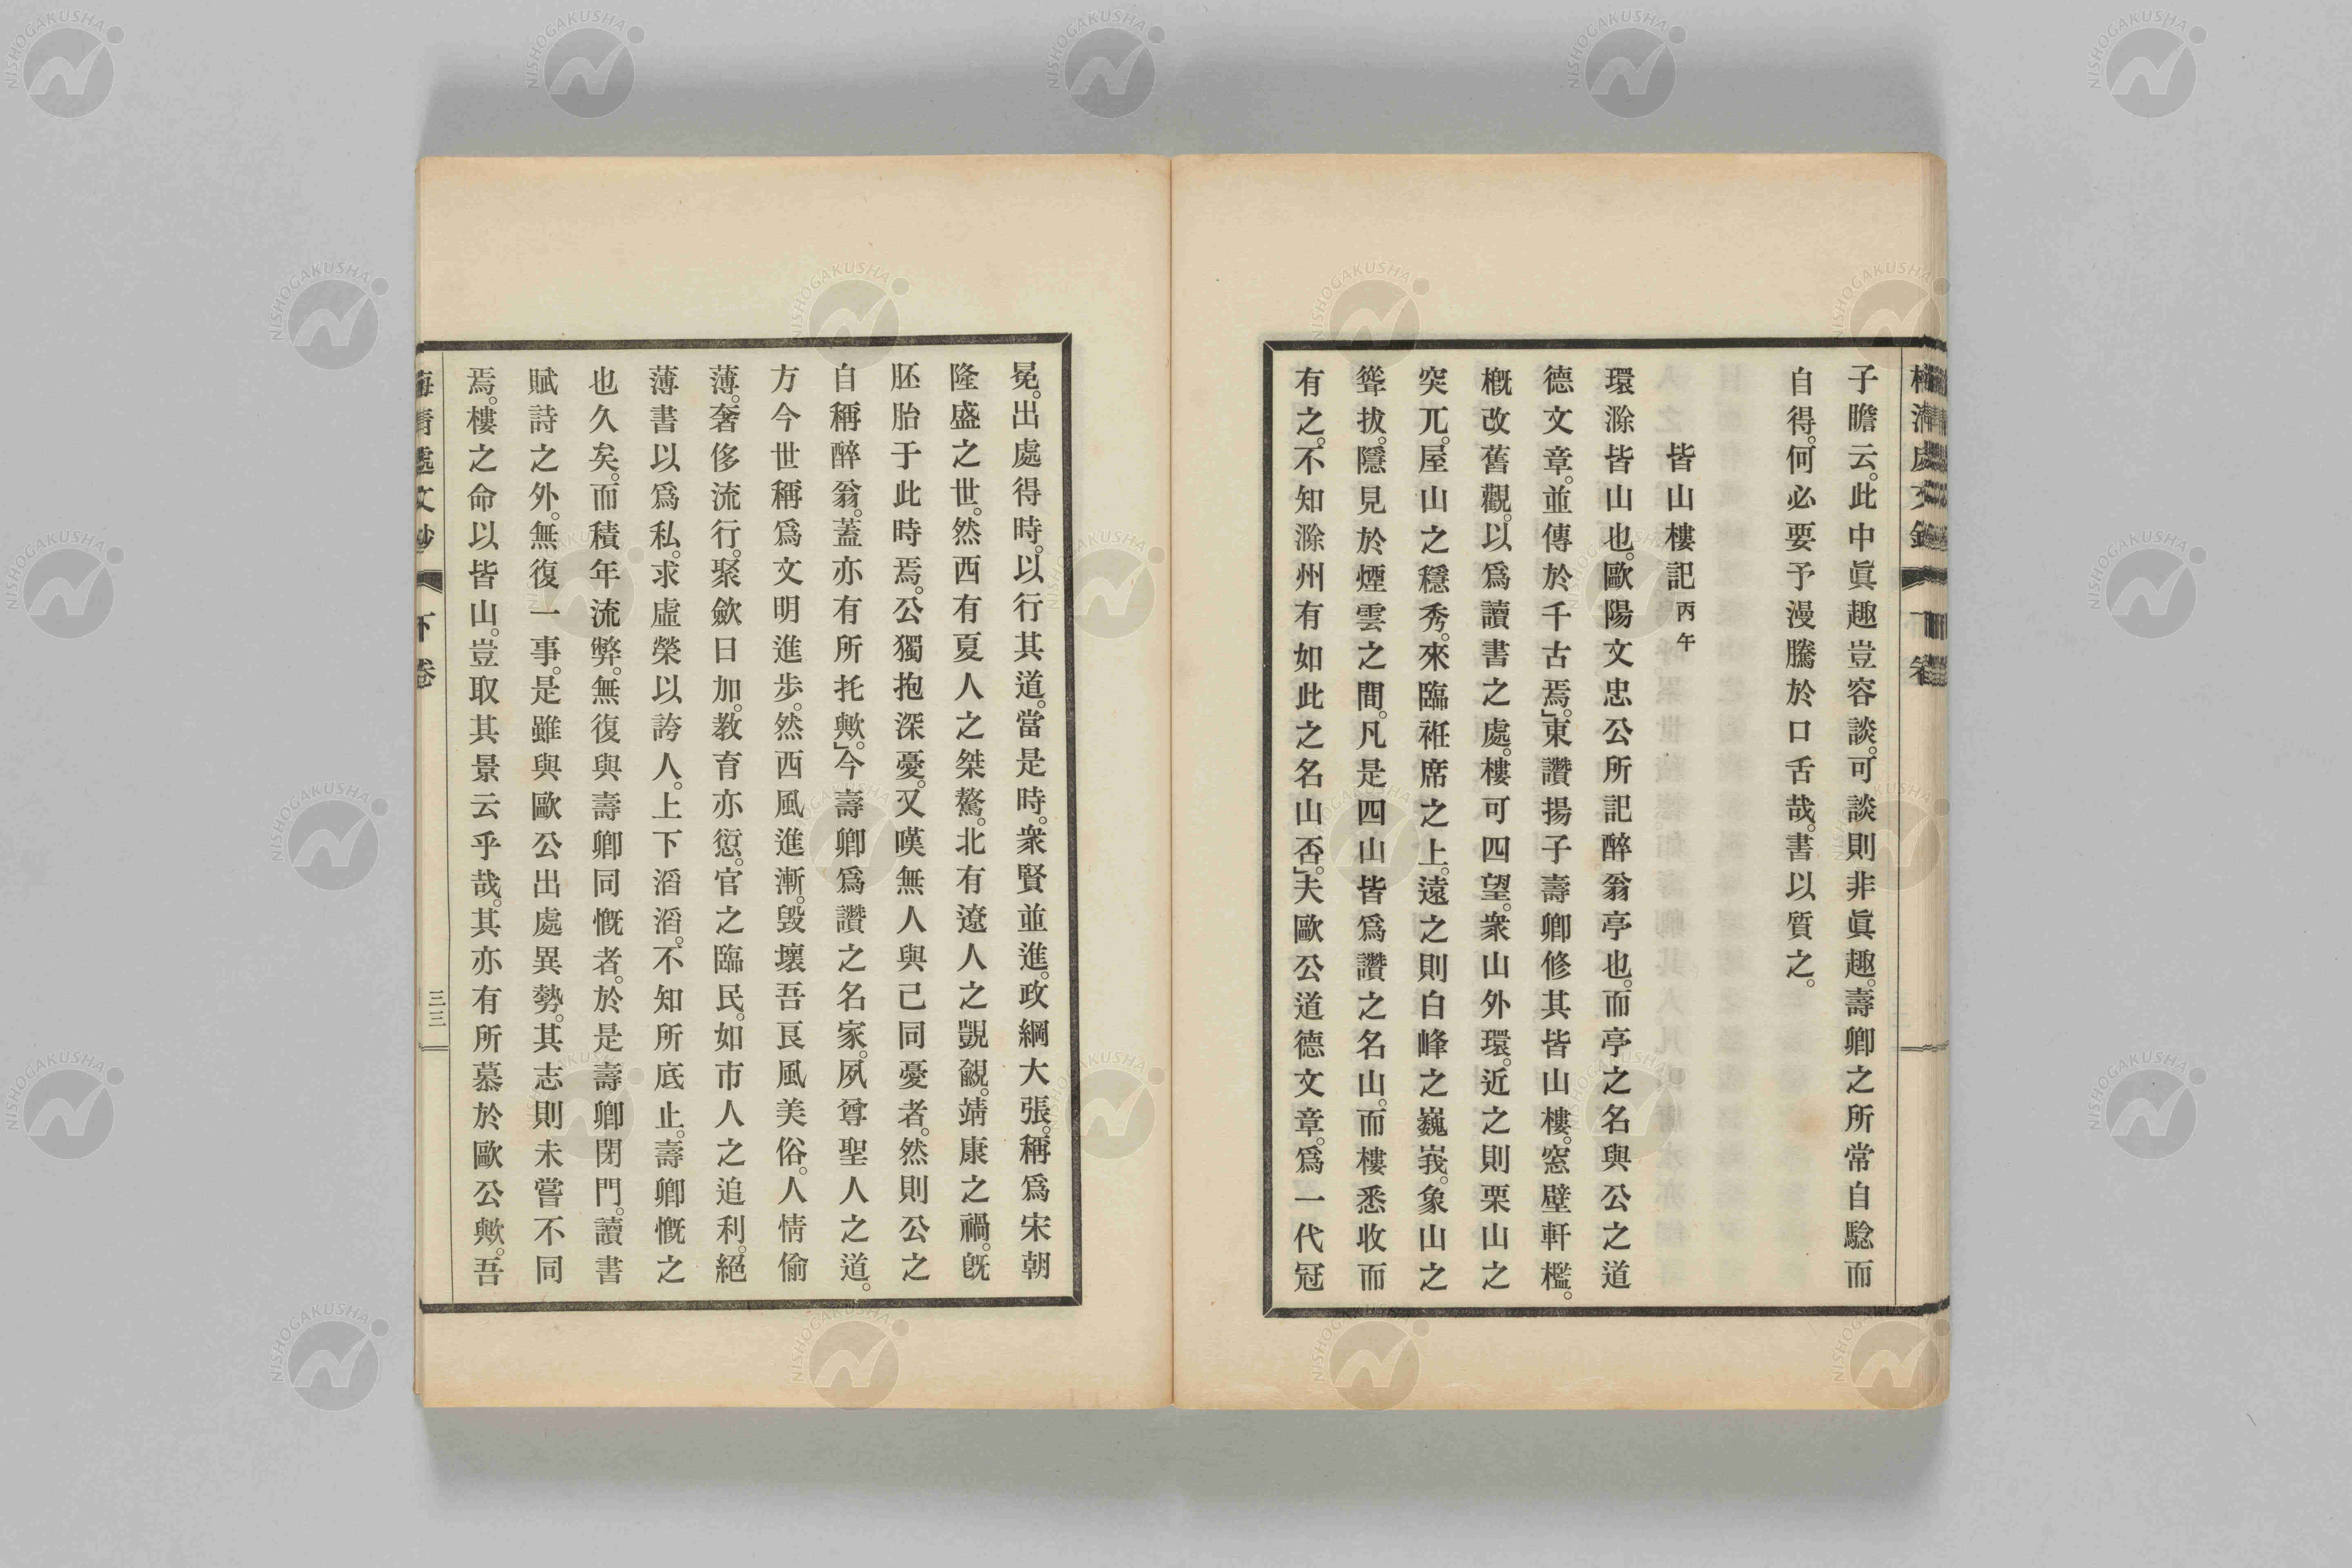 子瞻云。此中眞趣豈容談。可談則非眞趣。壽卿之所常自驗而
自得。何必要予漫騰於口舌哉。書以質之。
皆山樓記 丙午
環滁皆山也。歐陽文忠公所記醉翁亭也。而亭之名與公之道
德文章。並傳於千古焉。」東讚揚子壽卿修其皆山樓。窓壁軒檻。
概改舊觀。以爲讀書之處。樓可四望。衆山外環。近之則栗山之
突兀。屋山之穩秀。來臨袵席之上。遠之則白峰之巍峩。象山之
聳拔。隱見於煙雲之間。凡是四山皆爲讚之名山。而樓悉收而
有之。不知滁州有如此之名山否。」夫歐公道德文章。爲一代冠
冕。出處得時。以行其道。當是時。衆賢並進。政綱大張。稱爲宋朝
隆盛之世。然西有夏人之桀驁。北有遼人之覬覦。靖康之禍。旣
胚胎于此時焉。公獨抱深憂。又嘆無人與己同憂者。然則公之
自稱醉翁。蓋亦有所托歟。」今壽卿爲讚之名家。夙尊聖人之道。
方今世稱爲文明進步。然西風進漸。毀壞吾良風美俗。人情偷
薄。奢侈流行。聚斂日加。教育亦愆。官之臨民。如市人之追利。絕
薄書以爲私。求虛榮以誇人。上下滔滔。不知所底止。壽卿慨之
也久矣。而積年流弊。無復與壽卿同慨者。於是壽卿閉門。讀書
賦詩之外。無復一事。是雖與歐公出處異勢。其志則未嘗不同
焉。樓之命以皆山。豈取其景云乎哉。其亦有所慕於歐公歟。吾
下卷
三三
NISHOGAKUSHA